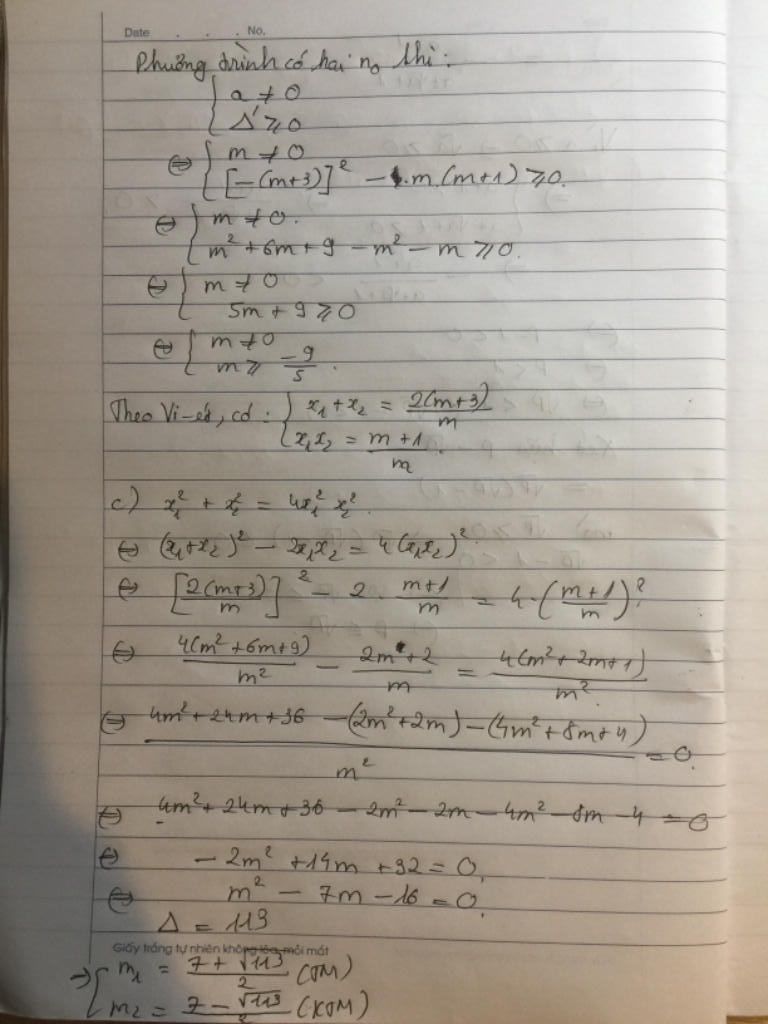 Date . . . No.
Phương trình có hai n₀ thì:
{ a ≠ 0
Δ' ≥ 0
⇔ { m ≠ 0
[-(m+3)]² - m.(m+1) ≥ 0.
⇔ { m ≠ 0.
m² + 6m + 9 - m² - m ≥ 0.
⇔ { m ≠ 0
5m + 9 ≥ 0
⇔ { m ≠ 0
m ≥ -9/5.
Theo Vi-ét, có: { x₁ + x₂ = 2(m+3)/m
x₁x₂ = m+1/m.
c) x₁² + x₂² = 4x₁² x₂².
⇔ (x₁+x₂)² - 2x₁x₂ = 4(x₁x₂)².
⇔ [2(m+3)/m]² - 2 . m+1/m = 4 . (m+1/m)²
⇔ 4(m² + 6m + 9)/m² - 2m + 2/m = 4(m² + 2m + 1)/m².
⇔ 4m² + 24m + 36 - (2m² + 2m) - (4m² + 8m + 4)/m² = 0.
⇔ 4m² + 24m + 36 - 2m² - 2m - 4m² - 8m - 4 = 0
⇔ - 2m² + 14m + 32 = 0.
⇔ m² - 7m - 16 = 0.
Δ = 113
Giấy trắng tự nhiên không lóa, mỏi mắt
⇒ [ m₁ = 7 + √113/2 (TM)
m₂ = 7 - √113/2 (KTM)